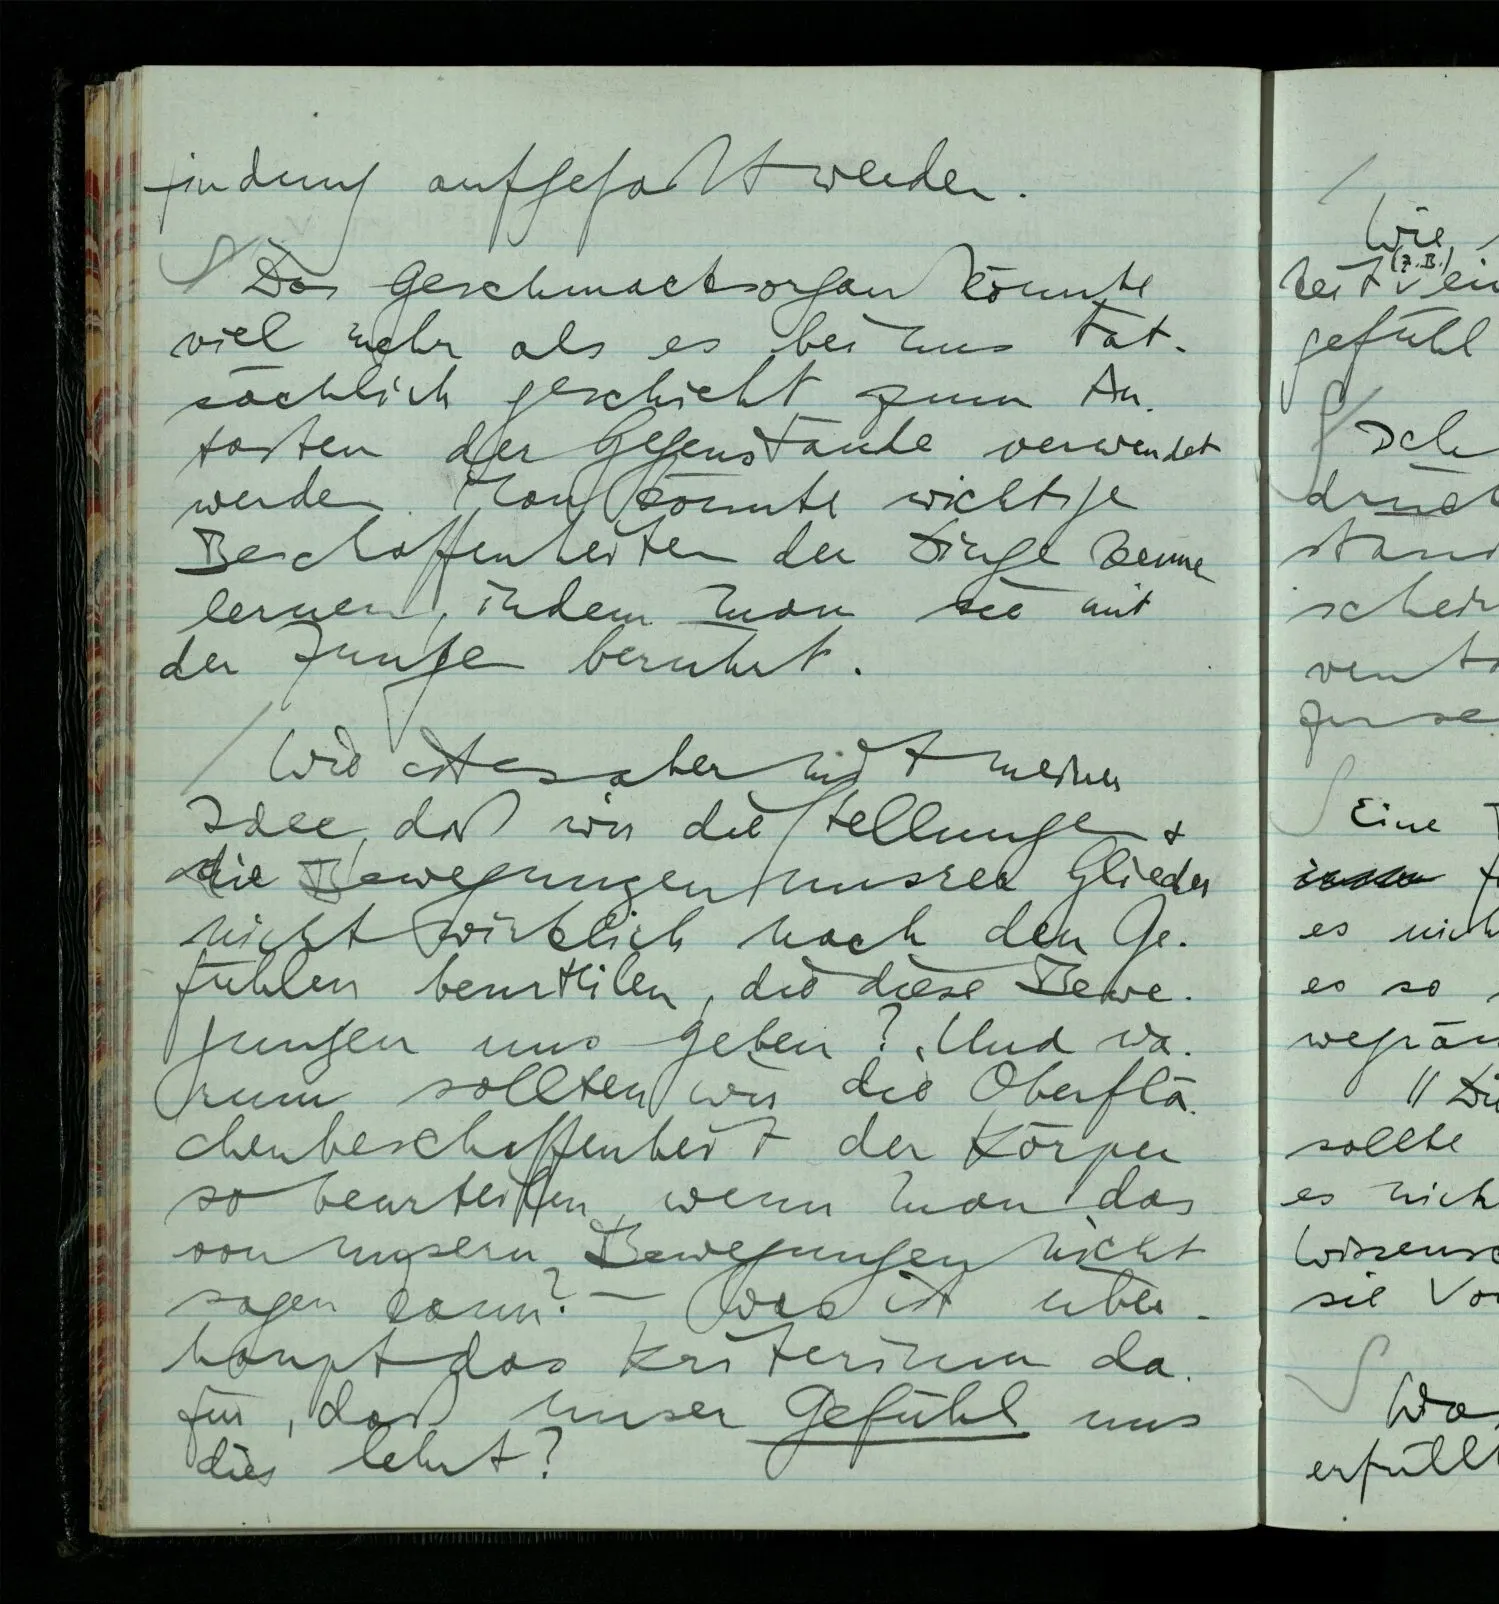 findung aufgefaßt werden.
Das Geschmacksorgan könnte
viel mehr als es bei uns tat-
sächlich geschieht zum An-
tasten der Gegenstände verwendet
werden. Man könnte wichtige
Beschaffenheiten der Dinge kennen
lernen, indem man sie mit
der Zunge berührt.
Wie ist es aber mit meiner
Idee, daß wir die Stellungen &
die Bewegungen unsrer Glieder
nicht wirklich nach den Ge-
fühlen beurteilen, die diese Bewe-
gungen uns geben? Und wa-
rum sollten wir die Oberflä-
chenbeschaffenheit der Körper
so beurteilen, wenn man das
von unsern Bewegungen nicht
sagen kann? – Was ist über-
haupt das Kriterium da-
für, daß unser Gefühl uns
dies lehrt?
Wie
(z.B.)
ein
gefühl
Ich
drück
stand
schein
Eine
es nich
es so
wegräu
// Die
sollte
es nich
Wissensc
sie Vor
Wa
erfüllt